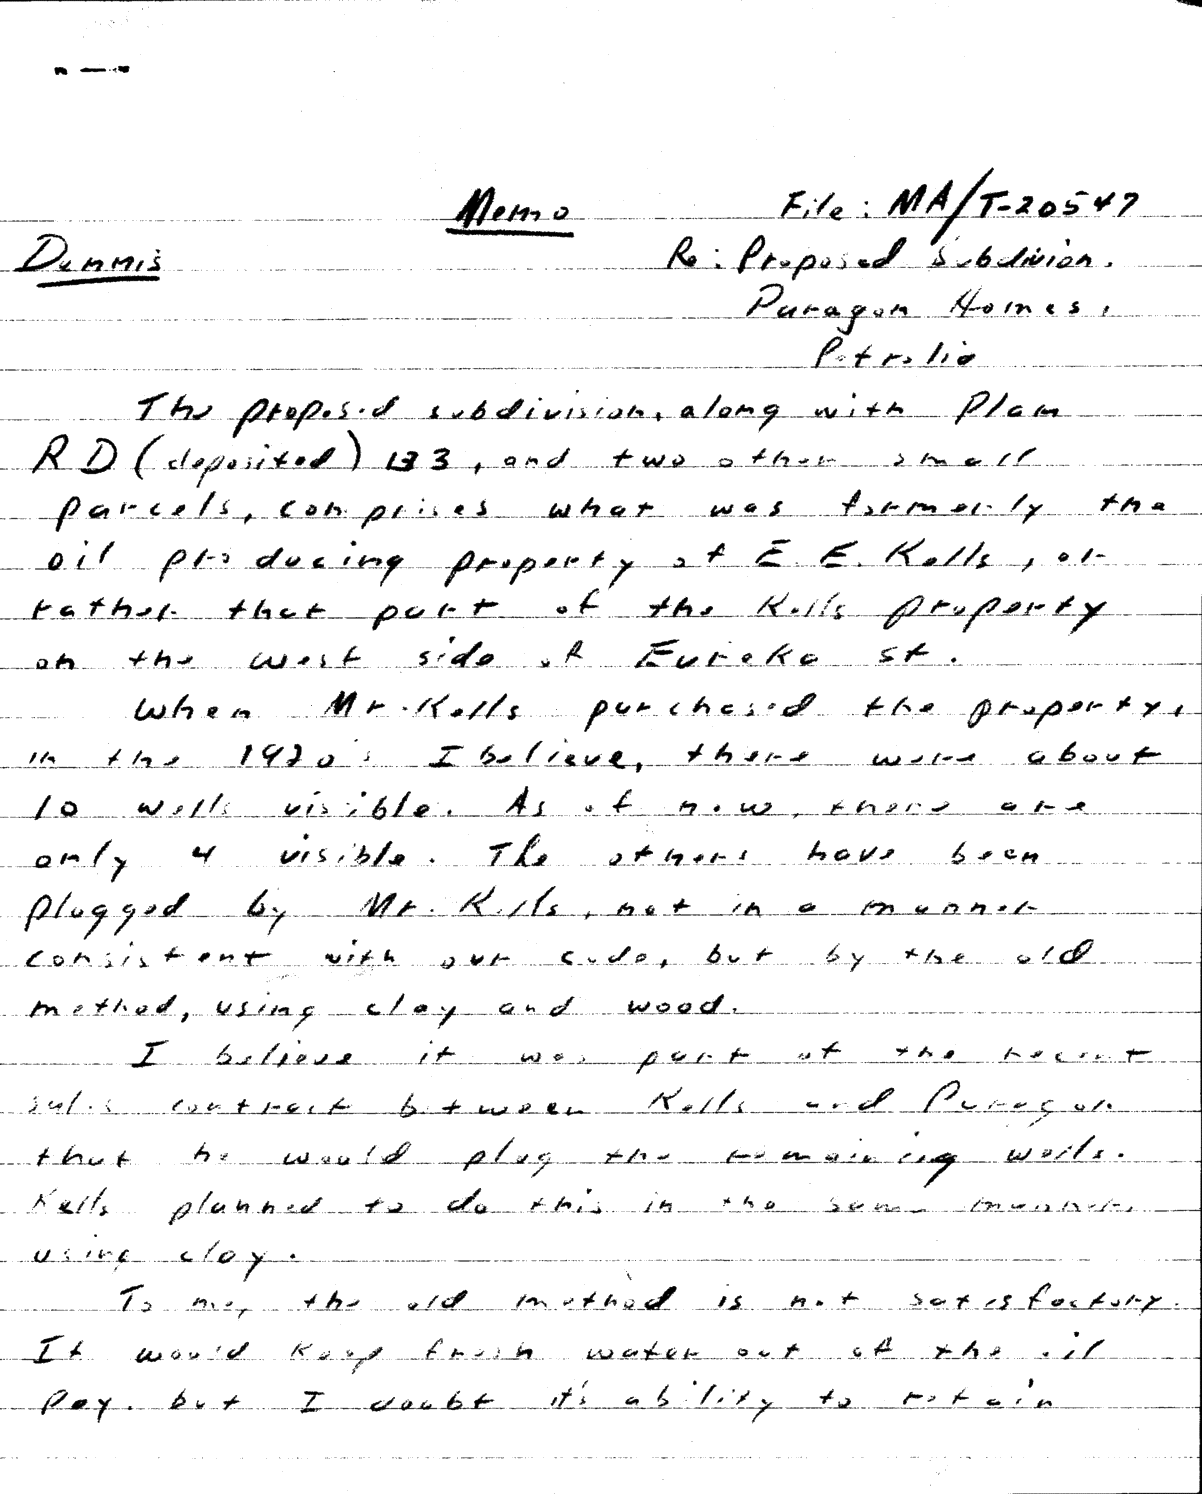 Memo
File: MA/T-20547
Dennis
Re: Proposed Subdivion.
Paragon Homes,
Petrolia
The proposed subdivision, along with Plan
RD (deposited) 133, and two other small
parcels, comprises what was formerly the
oil producing property of E. E. Kells, or
rather that part of the Kells property
on the west side of Eureka st.
When Mr. Kells purchased the property,
in the 1920's I believe, there were about
10 wells visible. As of now, there are
only 4 visible. The others have been
plugged by Mr. Kells, not in a manner
consistent with our code, but by the old
method, using clay and wood.
I believe it was part of the recent
sales contract between Kells and Paragon
that he would plug the remaining wells.
Kells planned to do this in the same manner,
using clay.
To me, the old method is not satisfactory.
It would keep fresh water out of the oil
pay, but I doubt it's ability to retain